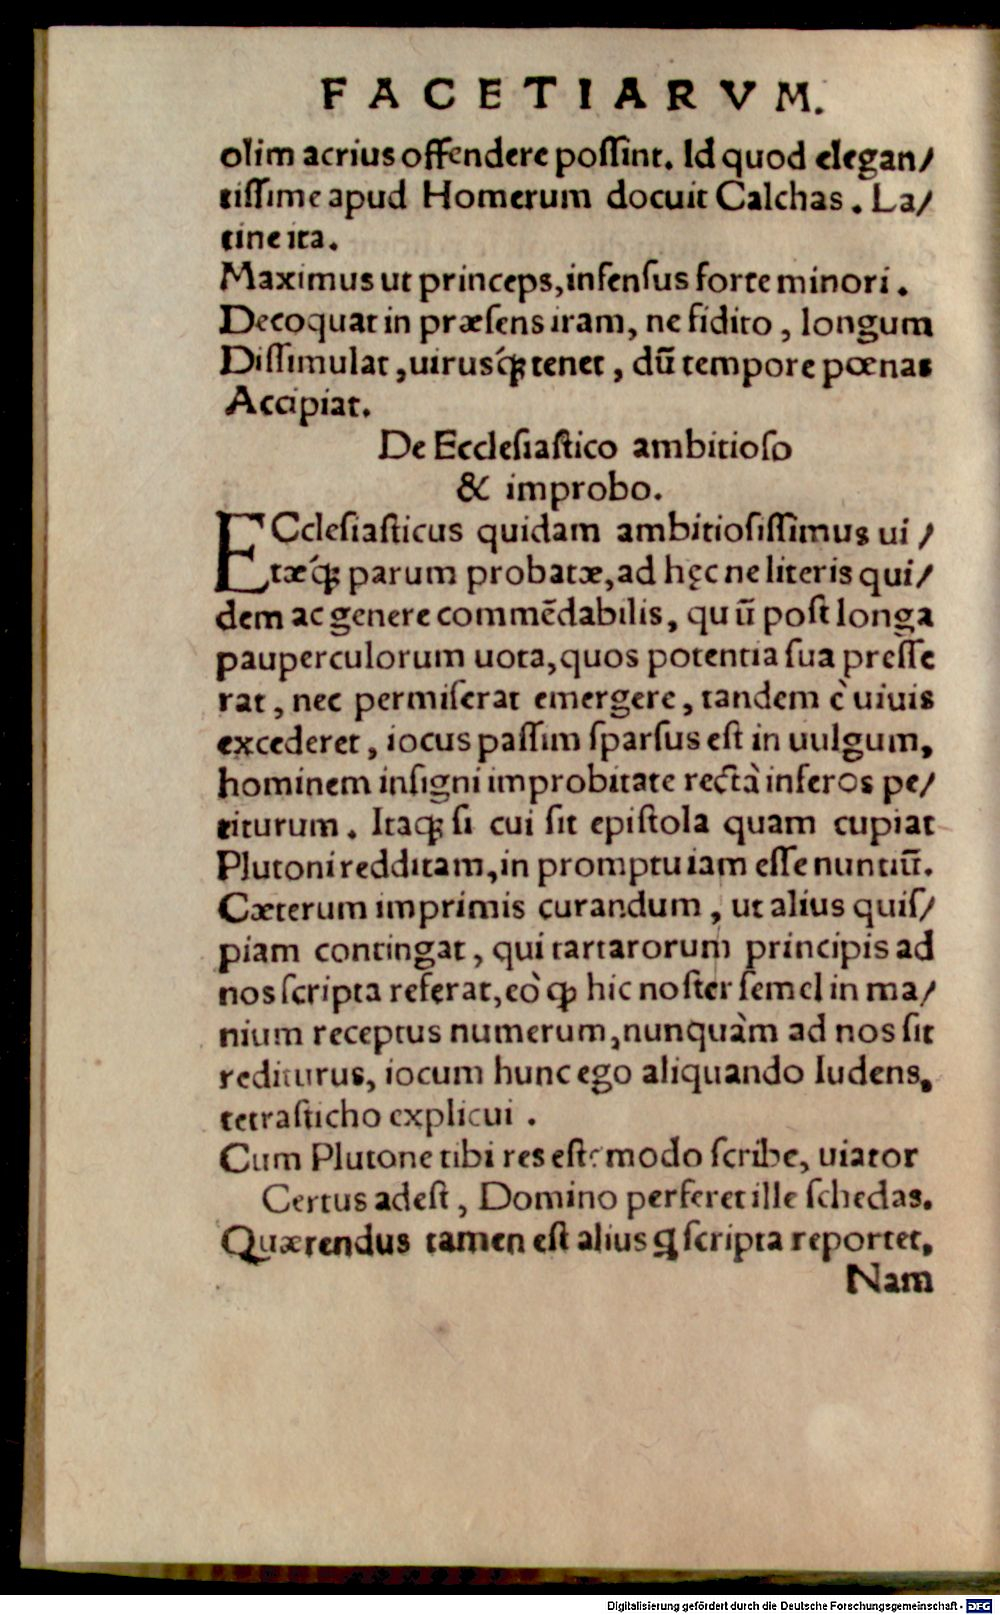 FACETIARVM.
olim acrius offendere poſſint. Id quod elegan/
tiſſime apud Homerum docuit Calchas. La/
tine ita.
Maximus ut princeps, infenſus forte minori.
Decoquat in præſens iram, ne fidito, longum
Diſſimulat, uirusq́ꝫ tenet, dū tempore pœnas
Accipiat.
De Eccleſiaſtico ambitioſo
& improbo.
ECcleſiaſticus quidam ambitioſiſſimus ui/
tæq́ꝫ parum probatæ, ad hęc ne literis qui/
dem ac genere commēdabilis, quū poſt longa
pauperculorum uota, quos potentia ſua preſſe
rat, nec permiſerat emergere, tandem è uiuis
excederet, iocus paſſim ſparſus eſt in uulgum,
hominem inſigni improbitate rectà inferos pe/
titurum. Itaqꝫ ſi cui ſit epiſtola quam cupiat
Plutoni redditam, in promptu iam eſſe nuntiū.
Cæterum imprimis curandum, ut alius quiſ/
piam contingat, qui tartarorum principis ad
nos ſcripta referat, eò ꝙ hic noſter ſemel in ma/
nium receptus numerum, nunquàm ad nos ſit
rediturus, iocum hunc ego aliquando ludens,
tetraſticho explicui.
Cum Plutone tibi res eſt: modo ſcribe, uiator
Certus adeſt, Domino perferet ille ſchedas.
Quærendus tamen eſt alius ꝗ ſcripta reportet,
Nam
Digitalisierung gefördert durch die Deutsche Forschungsgemeinschaft - DFG